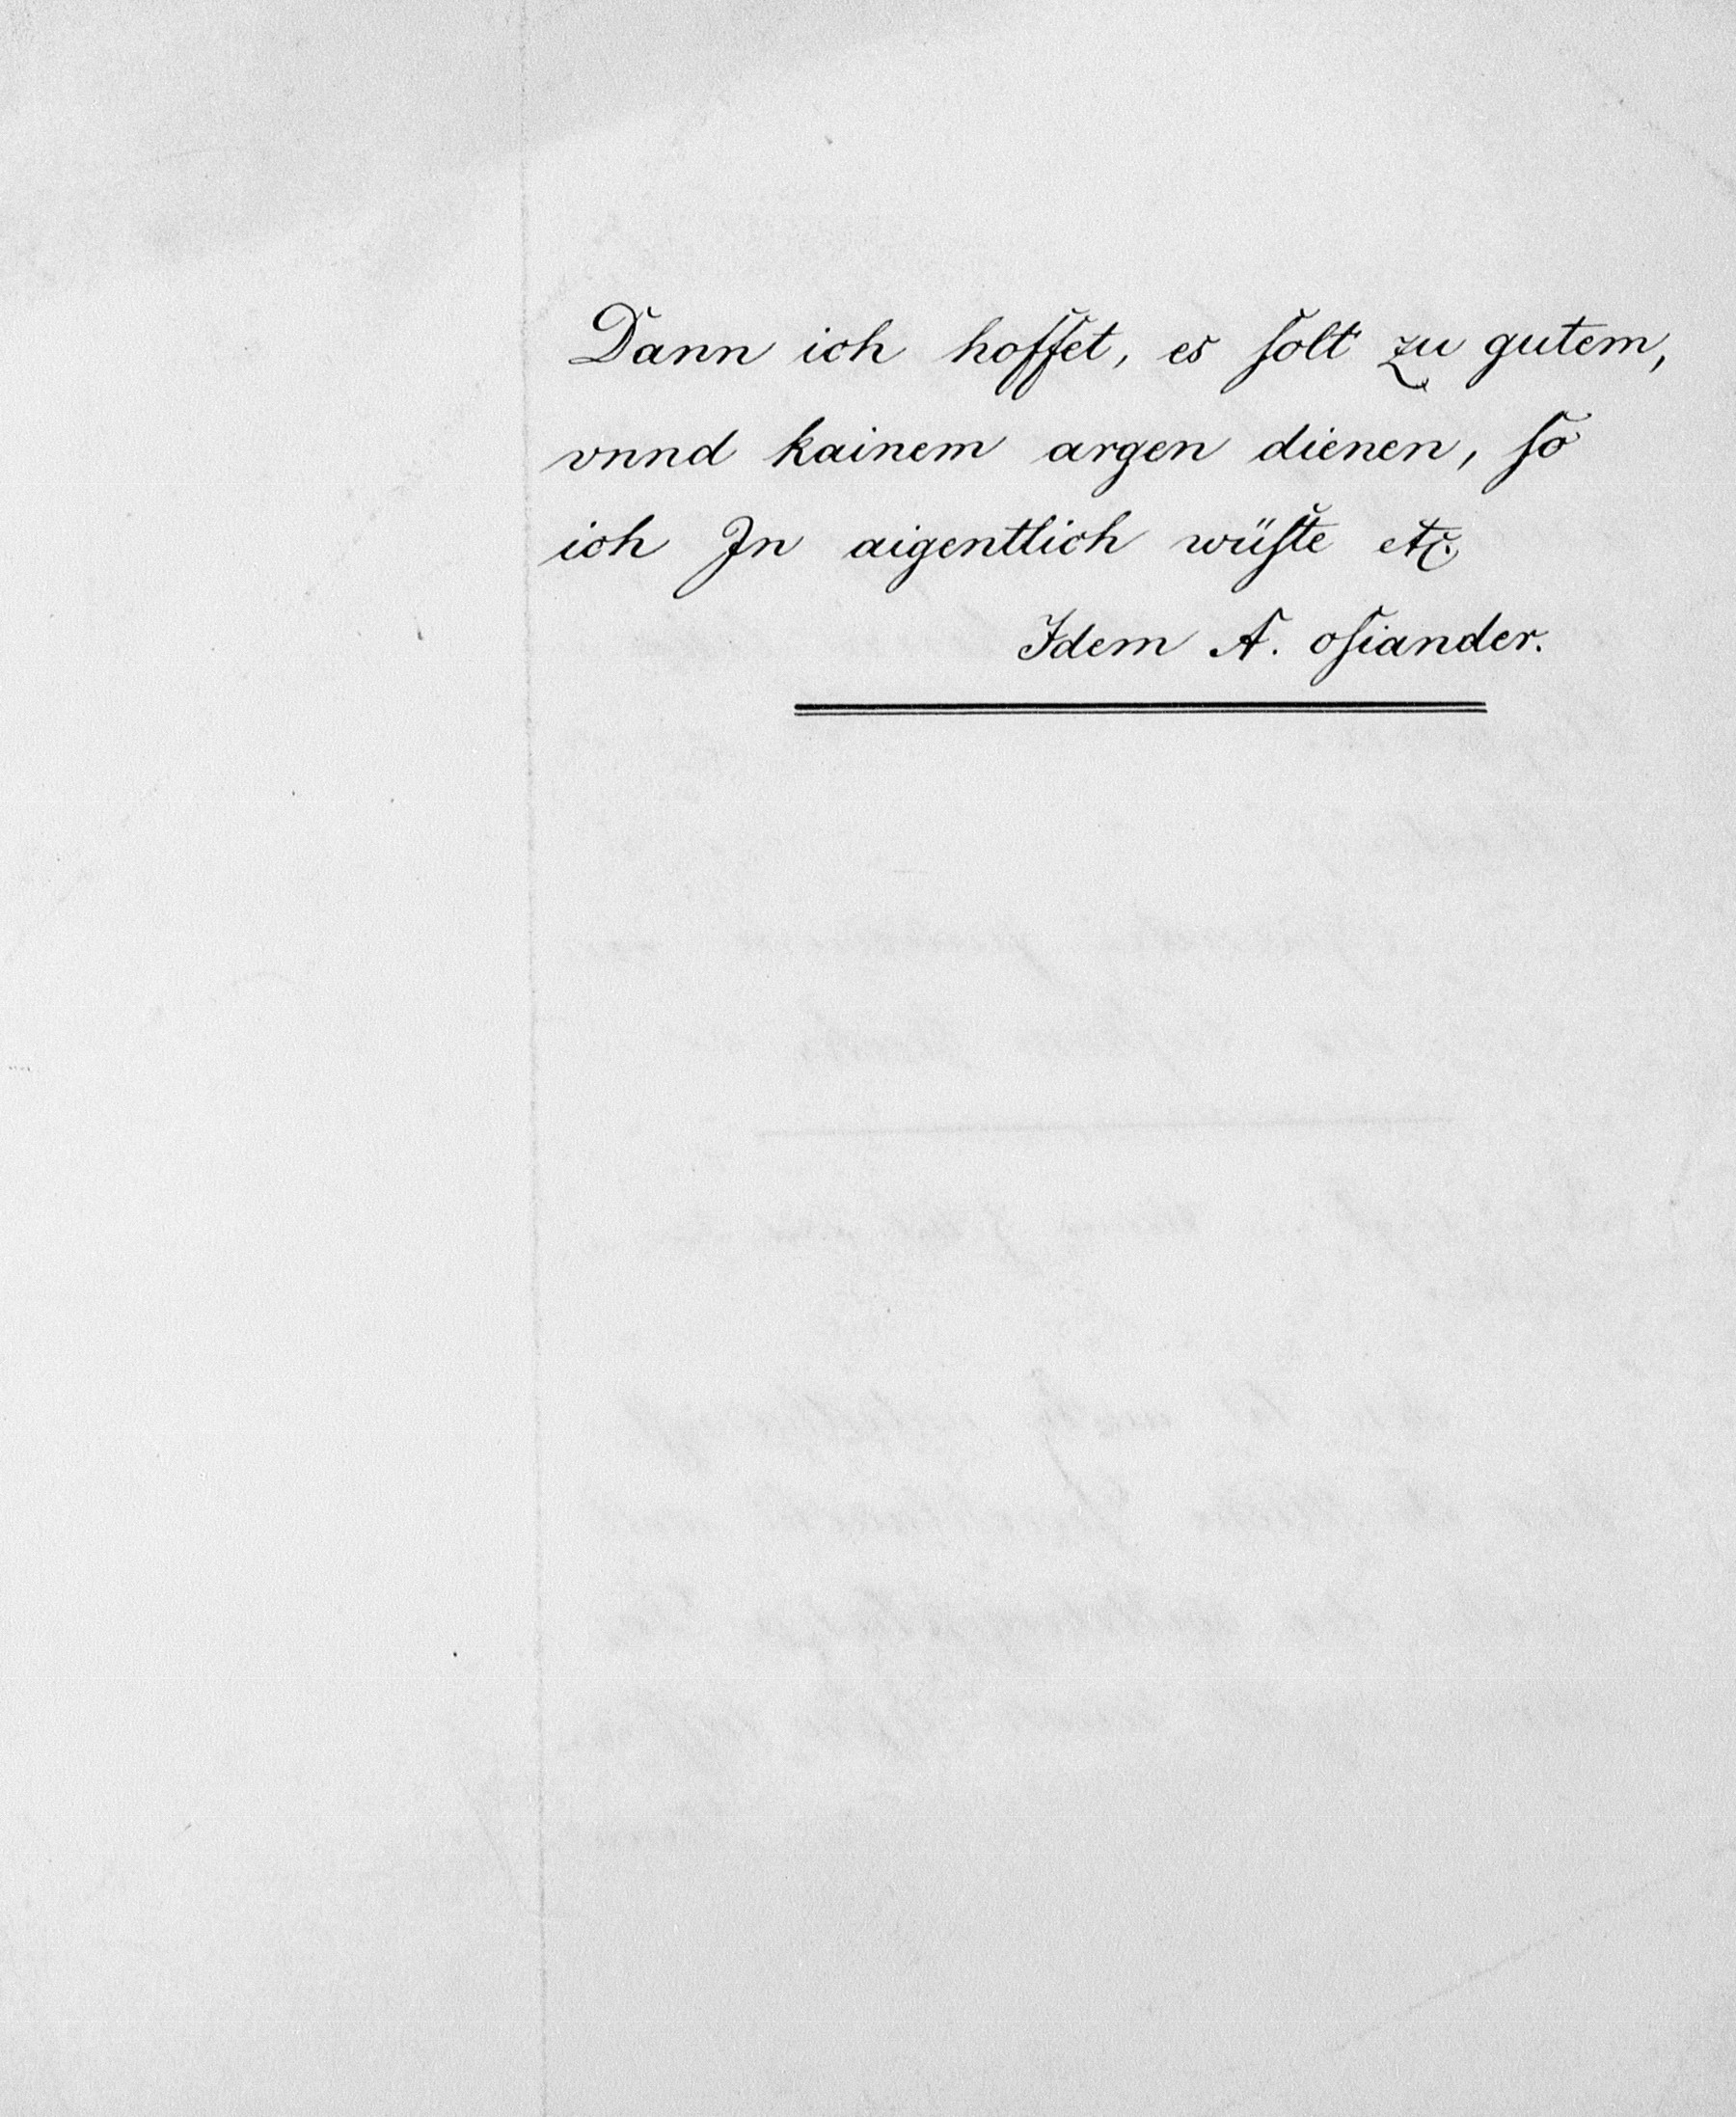 Dann ich hoffet, es ſolt zu gutem,
vnnd kainem argen dienen, ſo
ich Jn aigentlich wüſte etc.
Idem A. oſiander.